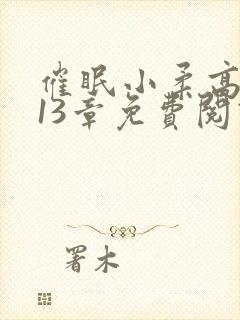 催眠小柔高
13章免費閱
署木